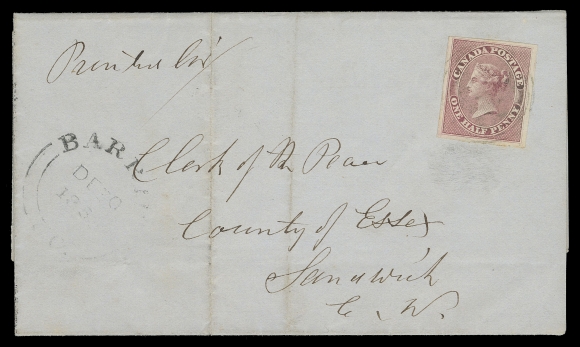 Printed Cir
CANADA POSTAGE
ONE HALF PENNY
BARRIE
DE
185
Clerk of the Peace
County of Essex
Sandwich
C. W.